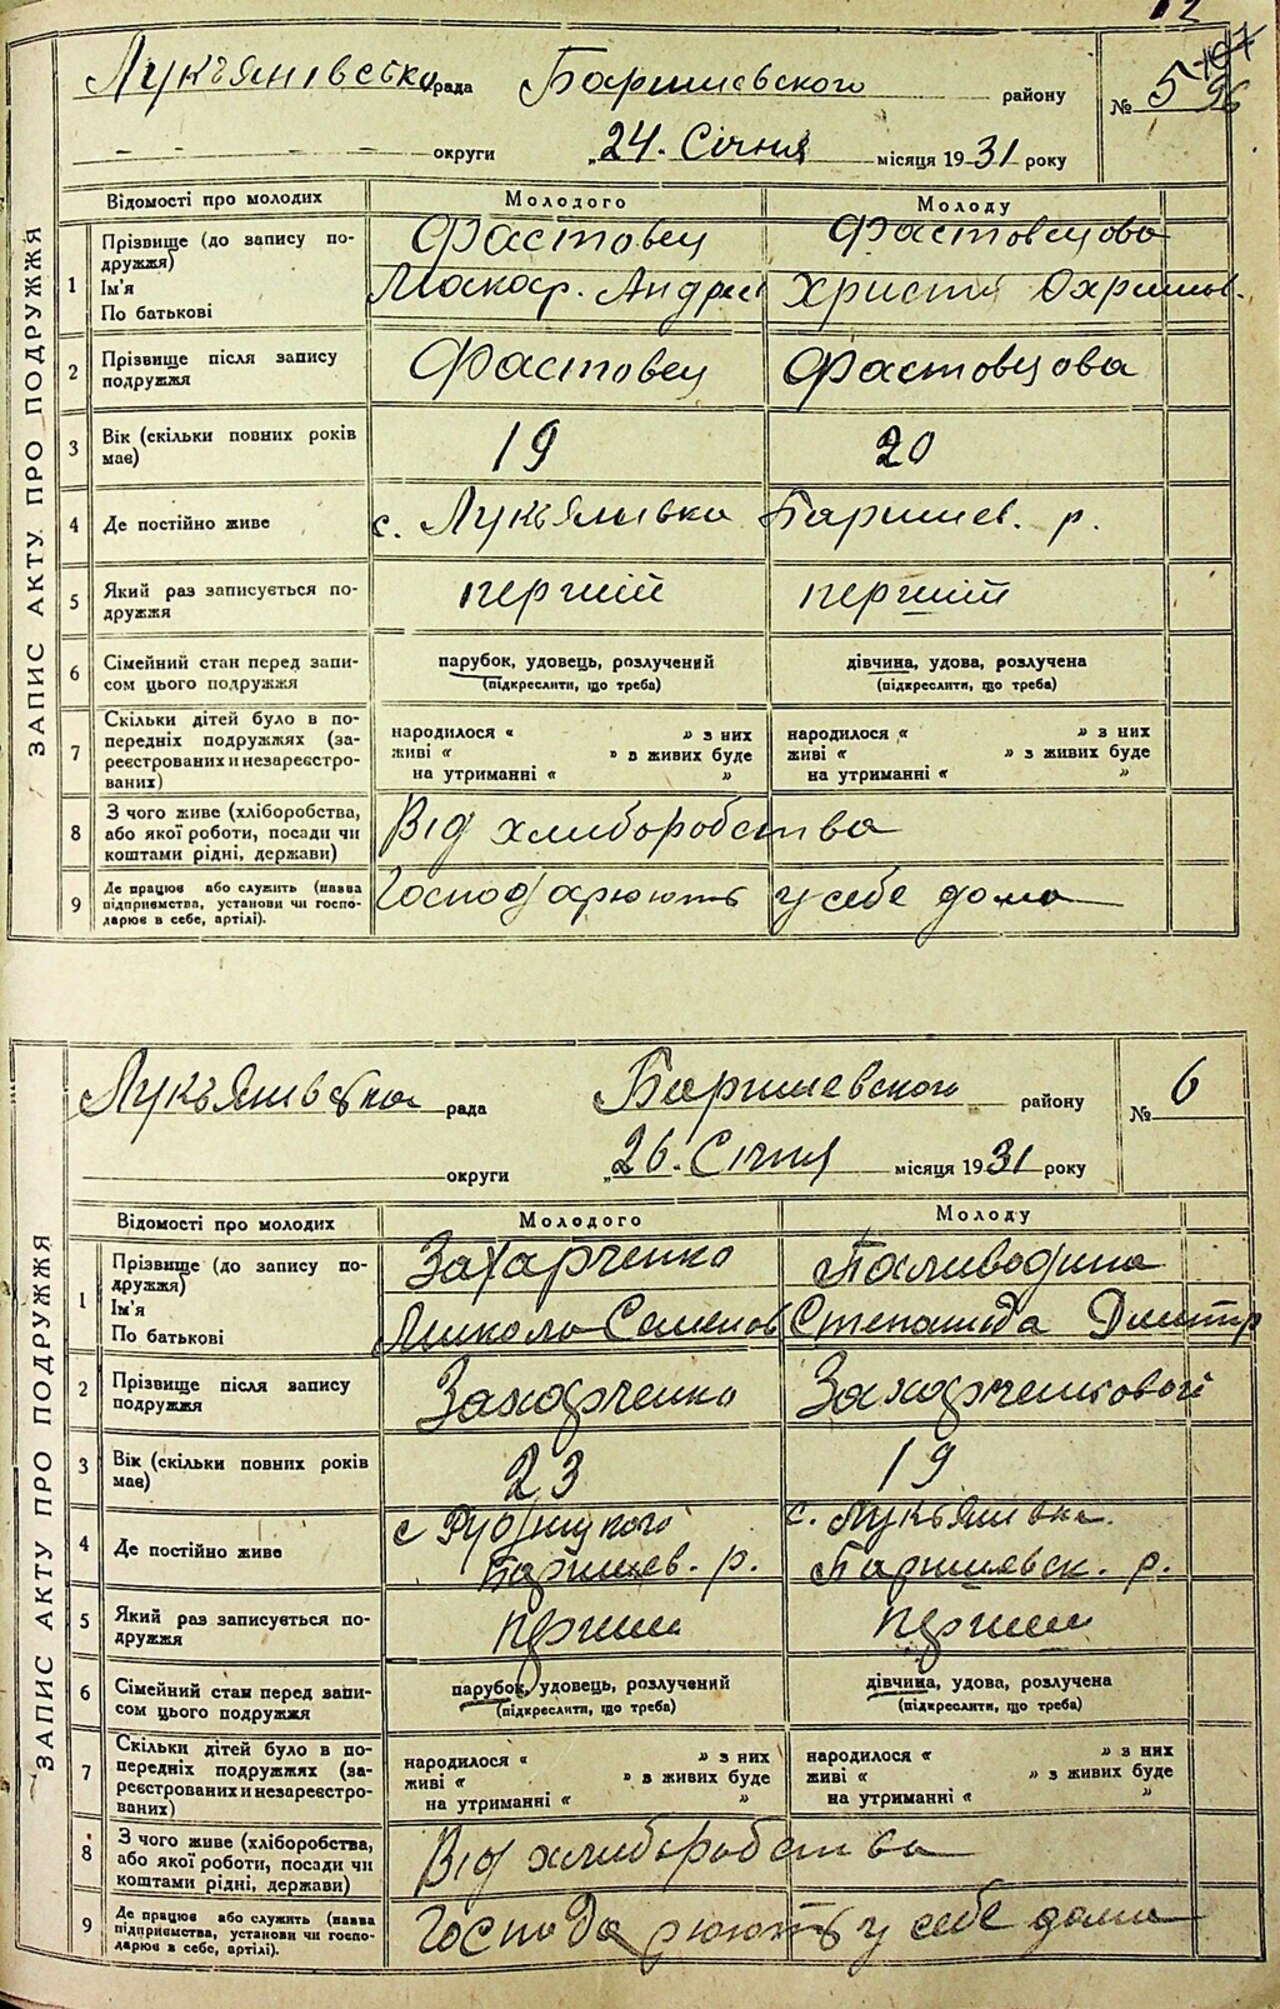 12
Лукъянівська рада Баришевского району № 5 107 96
округи „24. Січня місяця 1931 року
ЗАПИС АКТУ ПРО ПОДРУЖЖЯ
Відомості про молодих Молодого Молоду
1 Прізвище (до запису по-
дружжя) Фастовец Фастовецова
Ім'я Макар. Андрее Христя Охримов.
По батькові
2 Прізвище після запису
подружжя Фастовец Фастовцова
3 Вік (скільки повних років
має) 19 20
4 Де постійно живе с. Лукъянивка Баришев. р.
5 Який раз записується по-
дружжя перший перший
6 Сімейний стан перед запи-
сом цього подружжя парубок, удовець, розлучений дівчина, удова, розлучена
(підкреслити, що треба) (підкреслити, що треба)
7 Скільки дітей було в по-
передніх подружжях (за-
реєстрованих и незареєстро-
ваних)
народилося „ ” з них народилося „ ” з них
живі „ ” в живих буде живі „ ” з живих буде
на утриманні „ ” на утриманні „ ”
8 З чого живе (хліборобства,
або якої роботи, посади чи
коштами рідні, держави) Від хлиборобства
9 Де працює або служить (назва
підприємства, установи чи госпо-
дарює в себе, артілі). Господарюють у себе дома
Лукъянівська рада Баришевского району № 6
округи „26. Січня місяця 1931 року
ЗАПИС АКТУ ПРО ПОДРУЖЖЯ
Відомості про молодих Молодого Молоду
1 Прізвище (до запису по-
дружжя) Захарченко Паливодина
Ім'я Микола Семенов Степанида Дмитр
По батькові
2 Прізвище після запису
подружжя Захарченко Захарченковой
3 Вік (скільки повних років
має) 23 19
4 Де постійно живе с с. Лукъянівка
Баришев. р. Баришевск. р.
5 Який раз записується по-
дружжя перший перший
6 Сімейний стан перед запи-
сом цього подружжя парубок, удовець, розлучений дівчина, удова, розлучена
(підкреслити, що треба) (підкреслити, що треба)
7 Скільки дітей було в по-
передніх подружжях (за-
реєстрованих и незареєстро-
ваних)
народилося „ ” з них народилося „ ” з них
живі „ ” в живих буде живі „ ” з живих буде
на утриманні „ ” на утриманні „ ”
8 З чого живе (хліборобства,
або якої роботи, посади чи
коштами рідні, держави) Від хлиборобства
9 Де працює або служить (назва
підприємства, установи чи госпо-
дарює в себе, артілі). Господарюють у себе дома